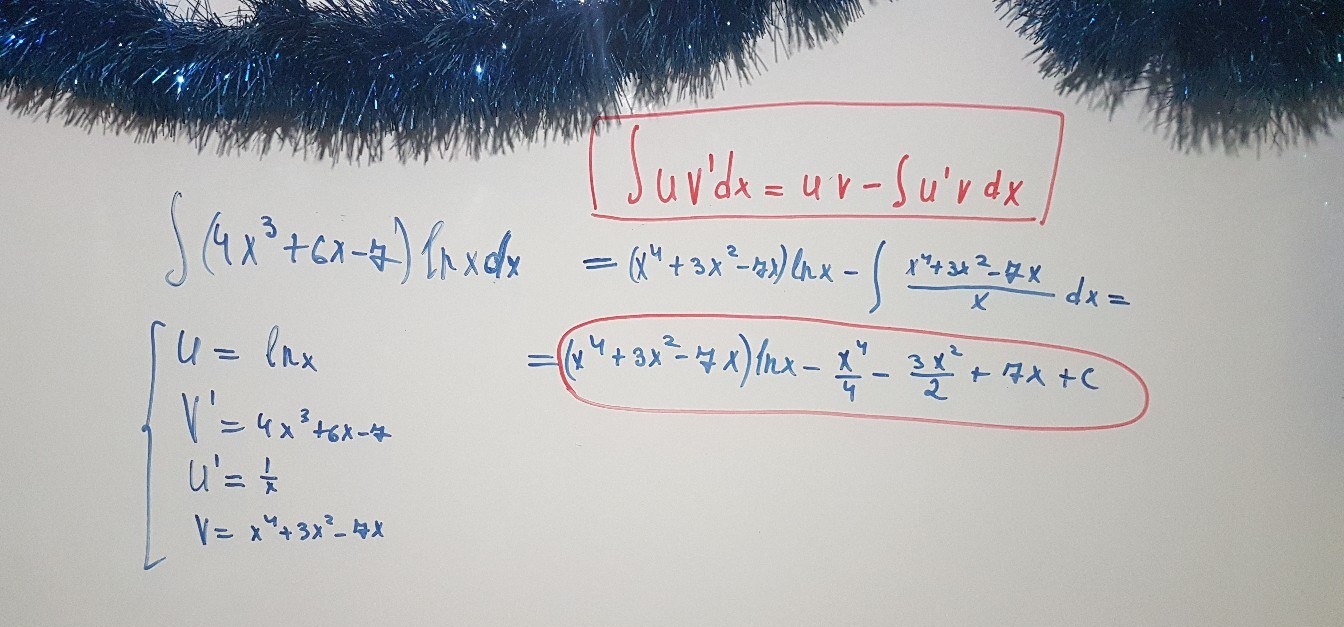 ∫ u v' dx = u v - ∫ u' v dx
∫ (4x³ + 6x - 7) ln x dx = (x⁴ + 3x² - 7x) ln x - ∫ (x⁴ + 3x² - 7x)/x dx =
= (x⁴ + 3x² - 7x) ln x - x⁴/4 - 3x²/2 + 7x + C
u = ln x
V' = 4x³ + 6x - 7
u' = 1/x
V = x⁴ + 3x² - 7x